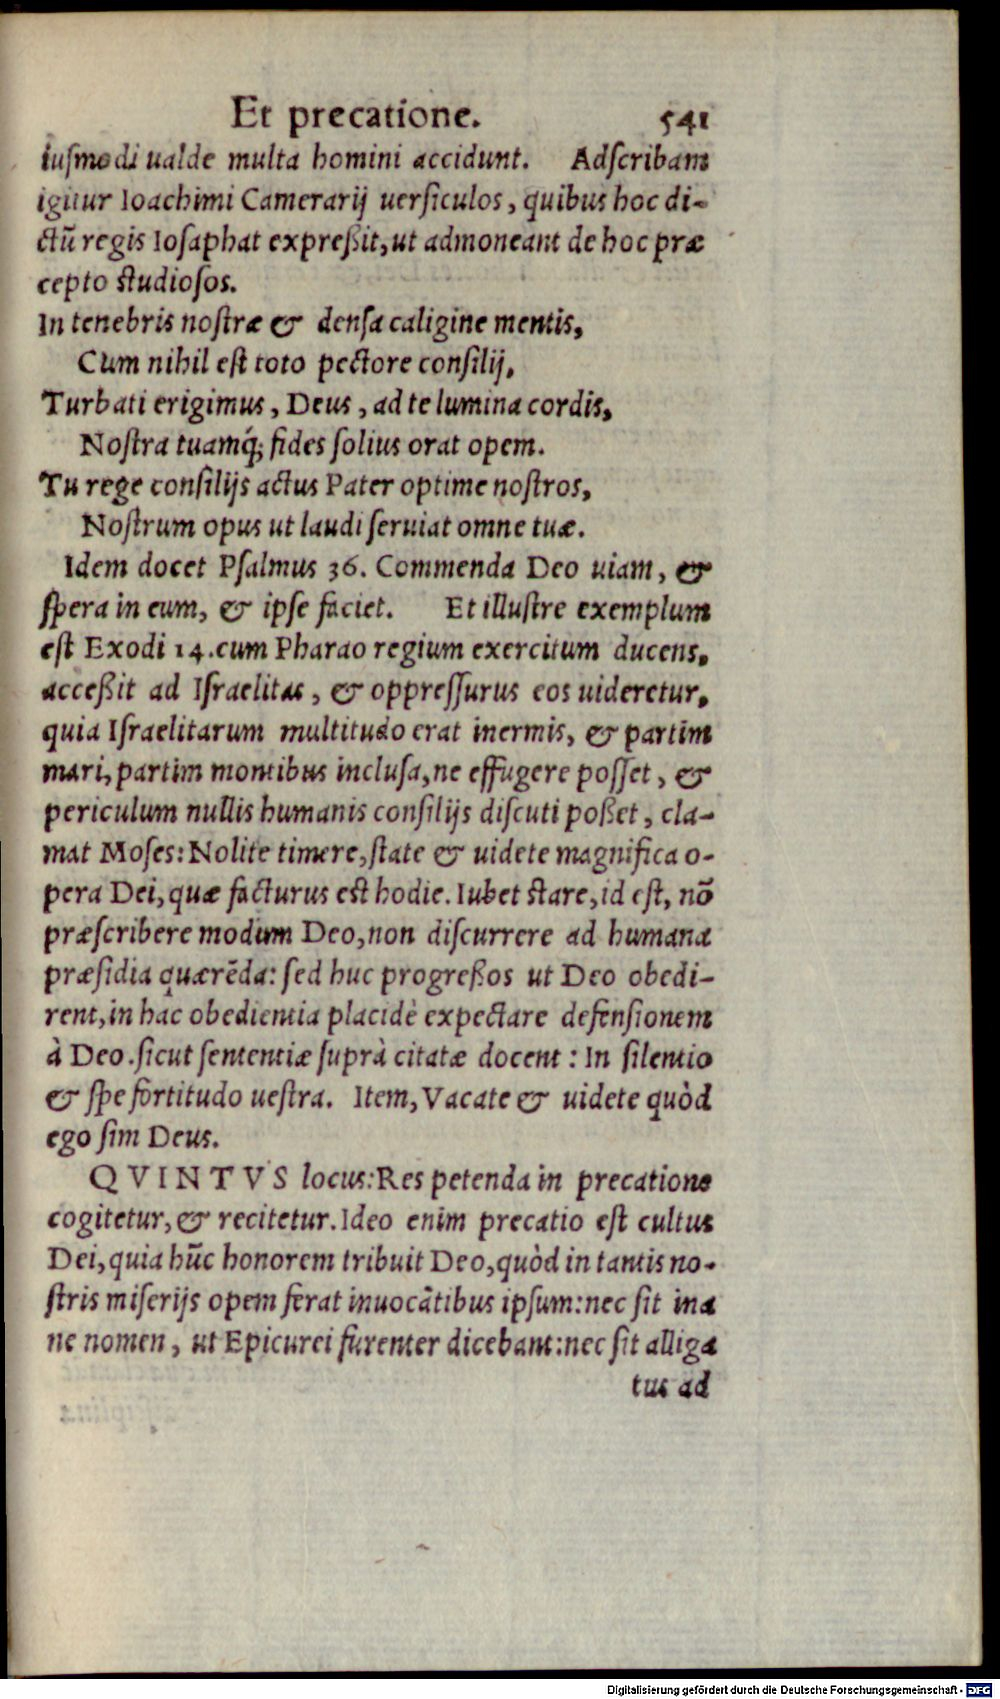 Et precatione. 541
iuſmodi ualde multa homini accidunt. Adſcribam
igitur Ioachimi Camerarij uerſiculos, quibus hoc di-
ctũ regis Ioſaphat expreßit, ut admoneant de hoc præ
cepto ſtudioſos.
In tenebris noſtræ & denſa caligine mentis,
Cum nihil eſt toto pectore conſilij,
Turbati erigimus, Deus, ad te lumina cordis,
Noſtra tuamq́; fides ſolius orat opem.
Tu rege conſilijs actus Pater optime noſtros,
Noſtrum opus ut laudi ſeruiat omne tuæ.
Idem docet Pſalmus 36. Commenda Deo uiam, &
ſpera in eum, & ipſe faciet. Et illuſtre exemplum
eſt Exodi 14. cum Pharao regium exercitum ducens,
acceßit ad Iſraelitas, & oppreſſurus eos uideretur,
quia Iſraelitarum multitudo erat inermis, & partim
mari, partim montibus incluſa, ne effugere poſſet, &
periculum nullis humanis conſilijs diſcuti poßet, cla-
mat Moſes: Nolite timere, ſtate & uidete magnifica o-
pera Dei, quæ facturus eſt hodie. Iubet ſtare, id eſt, nõ
præſcribere modum Deo, non diſcurrere ad humana
præſidia quærẽda: ſed huc progreßos ut Deo obedi-
rent, in hac obedientia placidè expectare defenſionem
à Deo. ſicut ſententiæ ſuprà citatæ docent: In ſilentio
& ſpe fortitudo ueſtra. Item, Vacate & uidete quòd
ego ſim Deus.
QVINTVS locus: Res petenda in precatione
cogitetur, & recitetur. Ideo enim precatio eſt cultus
Dei, quia hũc honorem tribuit Deo, quòd in tantis no-
ſtris miſerijs opem ferat inuocãtibus ipſum: nec ſit ina
ne nomen, ut Epicurei furenter dicebant: nec ſit alliga
tus ad
Digitalisierung gefördert durch die Deutsche Forschungsgemeinschaft - DFG